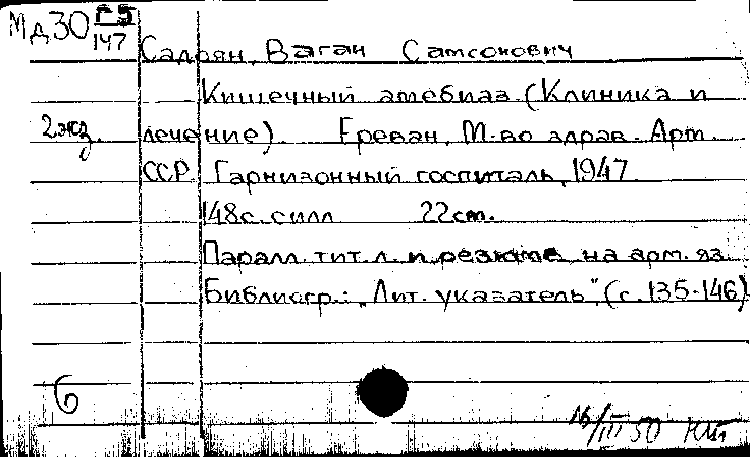 Мд30 Г5/147
Садоян, Ваган Самсонович
Кишечный амебиаз (Клиника и
2 экз. лечение). Ереван, М-во здрав. Арм.
ССР. Гарнизонный госпиталь, 1947
148с. с илл 22 см.
Паралл. тит. л. и резюме на арм. яз.
Библиогр.: "Лит. указатель", (с. 135-146)
6
16/III 50